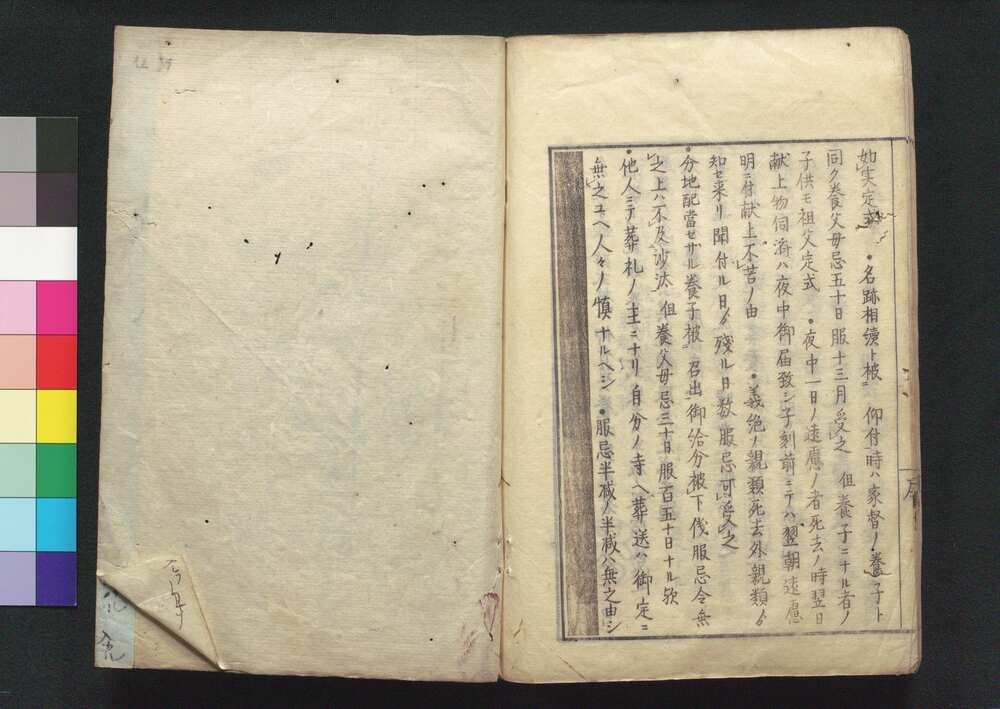 如実定式 ・名跡相續ト被 仰付時ハ家督ノ養子ト
同ク養父母忌五十日服十三月受之 但養子ニナル者ノ
子供モ祖父定式 ・夜中一日ノ遠慮ノ者死去ノ時翌日
献上物伺済ハ夜中御届致シ子刻前ニテハ翌朝遠慮
明ニ付献上不苦ノ由 ・義絶ノ親類死去外親類ゟ
知セ来リ聞付ル日ゟ残ル日数服忌可受之
・分地配當セサル養子被 召出御給分被下伐服忌令無
之上ハ不及沙汰 但養父母忌三十日服百五十日ナル欤
・他人ニテ葬礼ノ主ニナリ自分ノ寺ヘ葬送ハ御定ニ
無之ユヘ人々ノ慎ナルヘシ ・服忌半減ノ半減ハ無之由シ